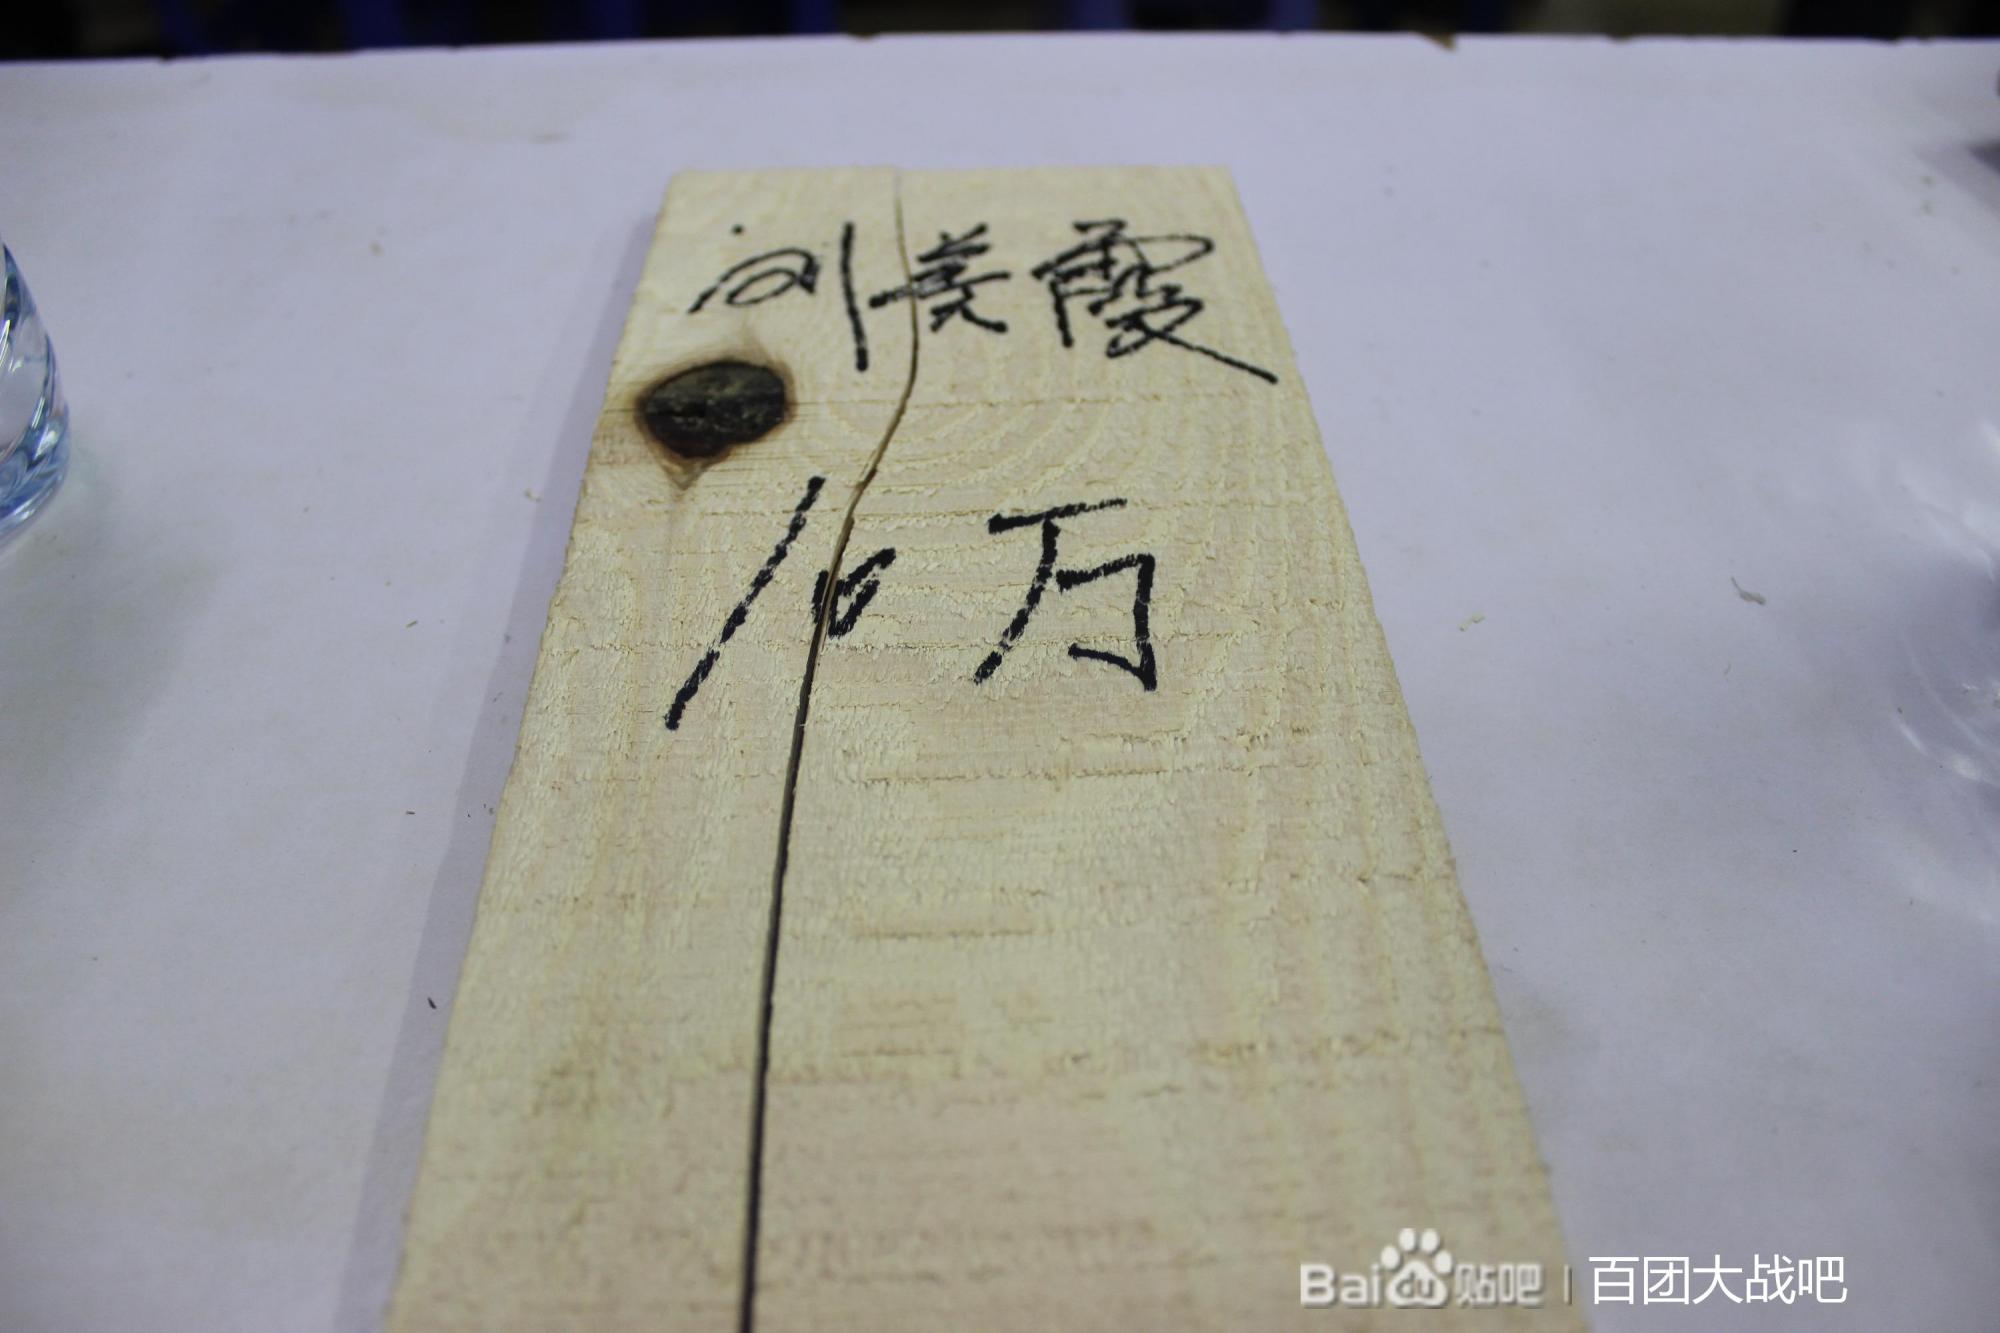 刘美霞
10万
Baidu贴吧 | 百团大战吧